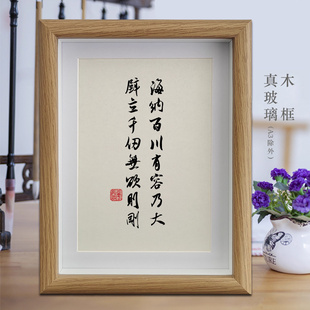 海納百川有容乃大
壁立千仞無欲則剛
木框
真玻璃
(A3除外)